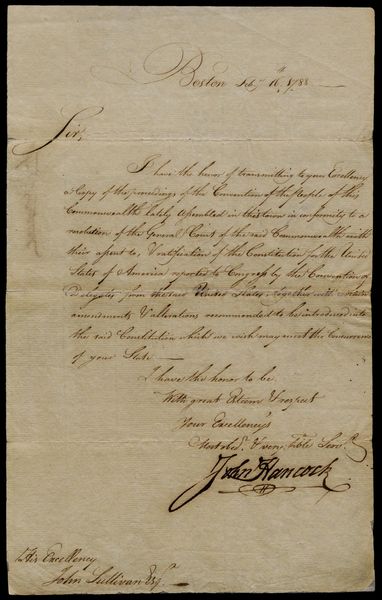 Boston Feb.y 16th 1788
Sir,
I have the honor of transmitting to your Excellency
a Copy of the proceedings of the Convention of the People of this
Commonwealth lately Assembled in this town in conformity to a
resolution of the General Court of the said Commonwealth with
their assent to, & ratification of the Constitution for the United
States of America reported to Congress by the Convention of
Delegates from the said United States, together with certain
amendments & alterations recommended to be introduced into
the said Constitution which we wish may meet the Concurrence
of your State —
I have the honor to be
With great Esteem & respect
Your Excellency's
Most obed. & very Hble Serv.t
John Hancock
His Excellency
John Sullivan Esq.r